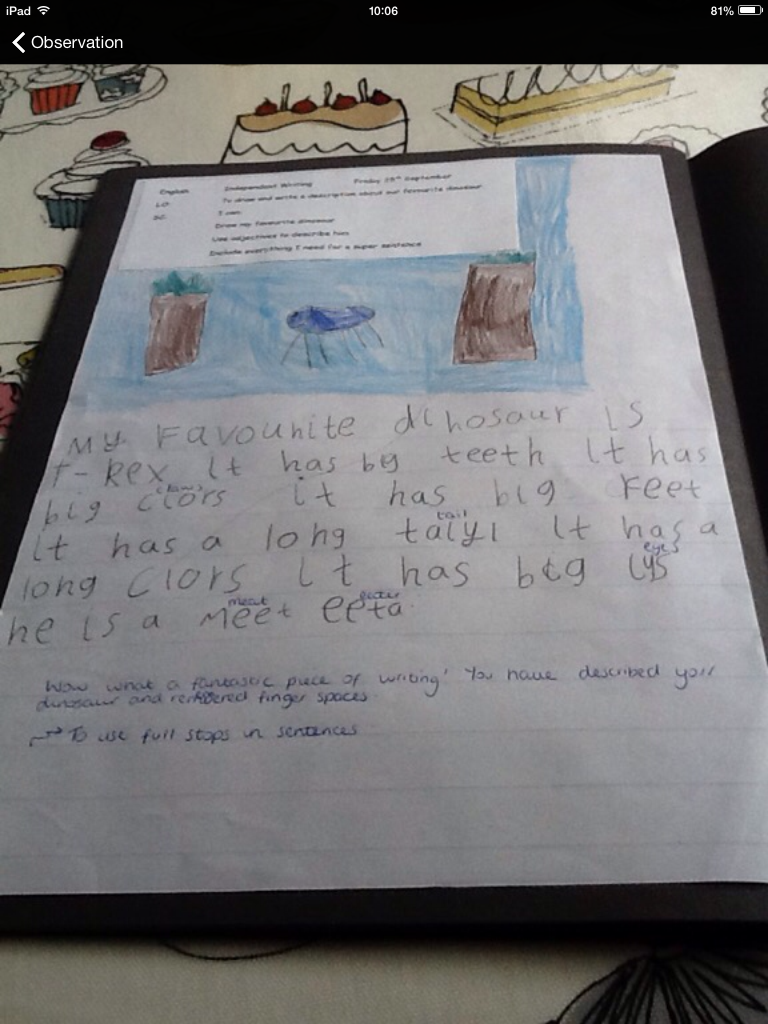 iPad 10:06 81%
Observation
English Independent Writing Friday 25th September
LO: To draw and write a description about our favourite dinosaur
SC: I can:
Draw my favourite dinosaur
Use adjectives to describe him
Include everything I need for a super sentence
My Favounite dinosaur is
t-rex it has big teeth it has
(claws)
big clors it has big Feet
tail
it has a long taiyl it has a
eyes
long clors it has big iys
meat eater
he is a meet eeta
Wow what a fantastic piece of writing! You have described your
dinosaur and remembered finger spaces.
→ To use full stops in sentences